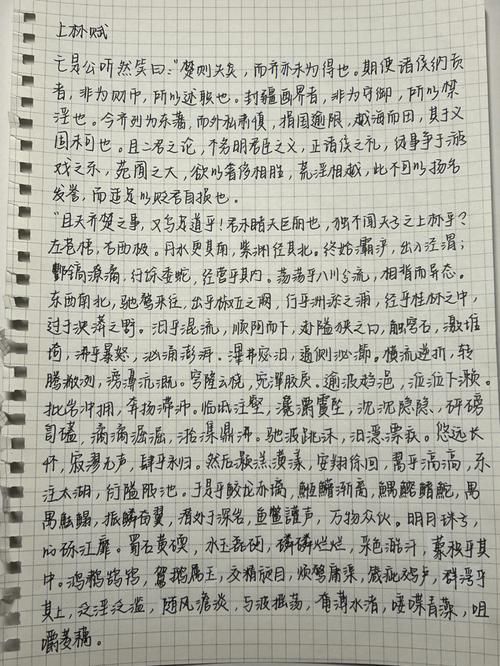 上林赋
亡是公听然笑曰：“楚则失矣，而齐亦未为得也。
者，非为财币，所以述职也。封疆画界者，非为守御，所以禁
淫也。今齐列为东藩，而外私肃慎，捐国逾限，越海而田，其于义
固未可也。且二君之论，不务明君臣之义，正诸侯之礼，徒事争于游
戏之乐，苑囿之大，欲以奢侈相胜，荒淫相越，此不可以扬名
发誉，而适足以贬君自损也。
“且夫齐楚之事，又乌足道乎！君未睹夫巨丽也，独不闻天子之上林乎？
左苍梧，右西极。丹水更其南，紫渊径其北。终始灞浐，出入泾渭；
酆镐潦潏，纡馀委蛇，经营乎其内。荡荡乎八川分流，相背而异态。
东西南北，驰骛来往，出乎椒丘之阙，行乎洲淤之浦，经乎桂林之中，
过乎泱漭之野。汩乎混流，顺阿而下，赴隘狭之口，触穹石，激堆
埼，沸乎暴怒，汹涌澎湃。
横流逆折，转
腾潎洌，滂濞沆溉。穹隆云桡，宛潬胶戾。逾波趋浥，涖涖下濑。
批岩冲拥，奔扬滞沛。临坻注壑，瀺灂霣坠，沉沉隐隐，砰磅
訇磕，潏潏淈淈，湁潗鼎沸。驰波跳沫，汩㶁漂疾。悠远长
怀，寂漻无声，肆乎永归。然后灏溔潢漾，安翔徐回，翯乎滈滈，东
注太湖，衍溢陂池。于是乎鲛龙赤螭，
振鳞奋翼，潜处乎深岩，鱼鳖讙声，万物众伙。明月珠子，
的砾江靡。蜀石黄碝，水玉磊砢，磷磷烂烂，采色澔汗，藂积乎其
中。鸿鹔鹄鸨，鴐鹅属玉，交精旋目，烦鹜庸渠，
群浮乎
其上，泛淫泛滥，随风澹淡，与波摇荡，奄薄水渚，唼喋菁藻，咀
嚼菱藕。